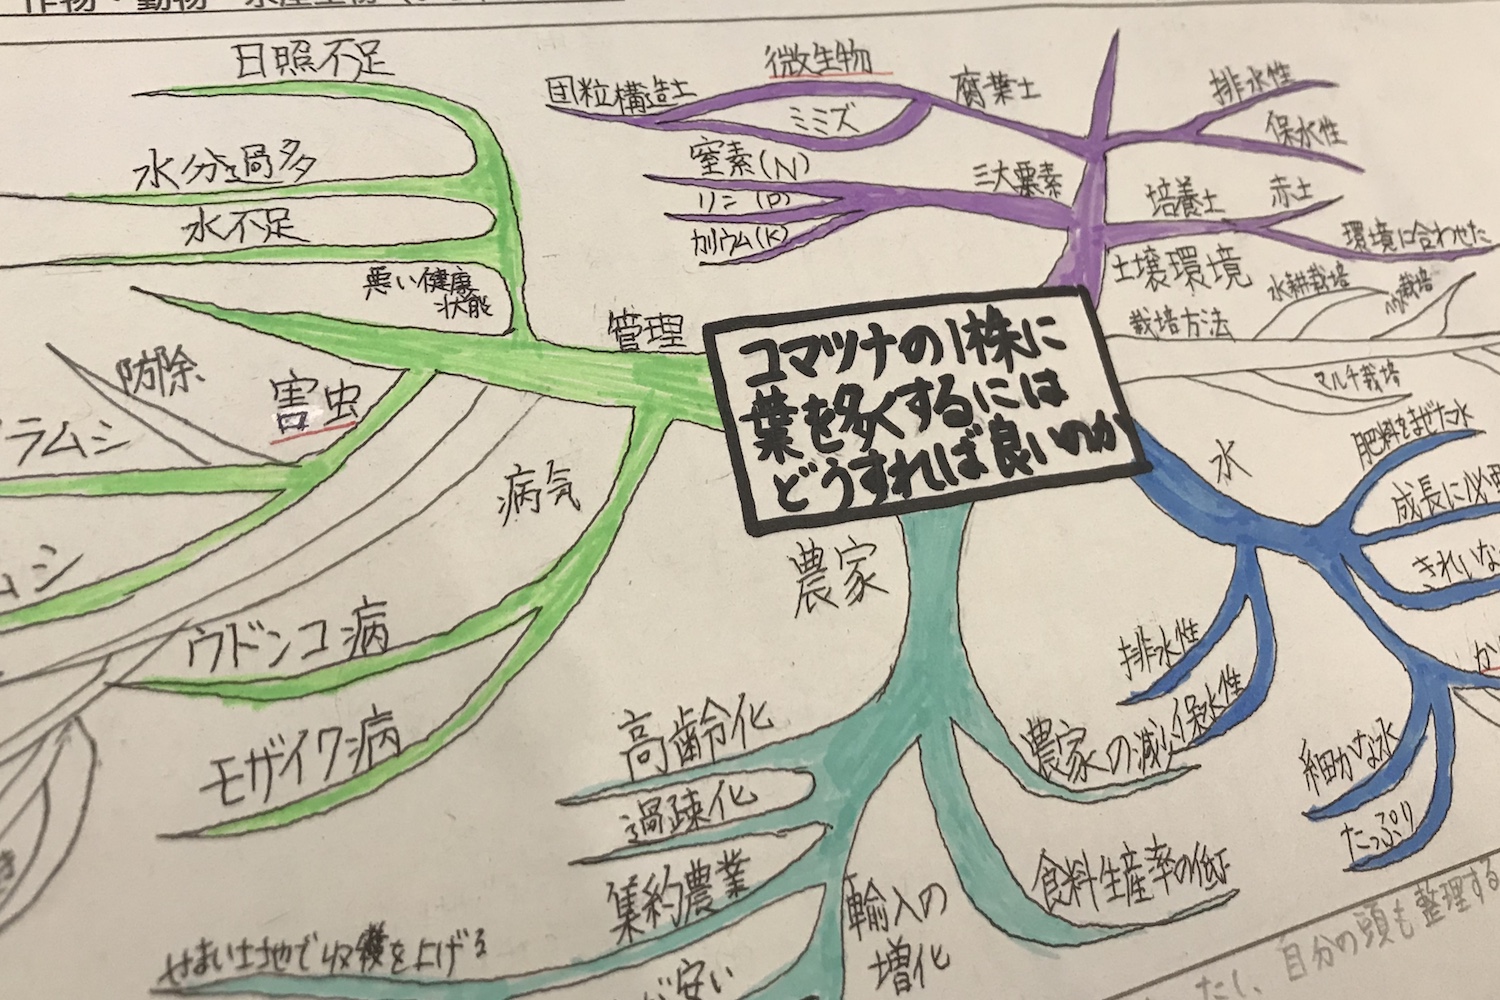 日照不足
水分過多
水不足
悪い健康
状態
管理
防除
害虫
ラムシ
ムシ
病気
ウドンコ病
モザイク病
団粒構造土
微生物
ミミズ
腐葉土
窒素(N)
リン(P)
カリウム(K)
三大要素
排水性
保水性
培養土
赤土
環境に合わせた
土壌環境
水耕栽培
栽培方法
マルチ栽培
コマツナの1株に
葉を多くするには
どうすれば良いのか
水
肥料をまぜた水
成長に必要
きれいな
排水性
保水性
細かな水
たっぷり
農家
高齢化
過疎化
集約農業
せまい土地で収穫を上げる
農家の減少
食料生産率の低下
輸入の
増化
が安い
自分の頭も整理する